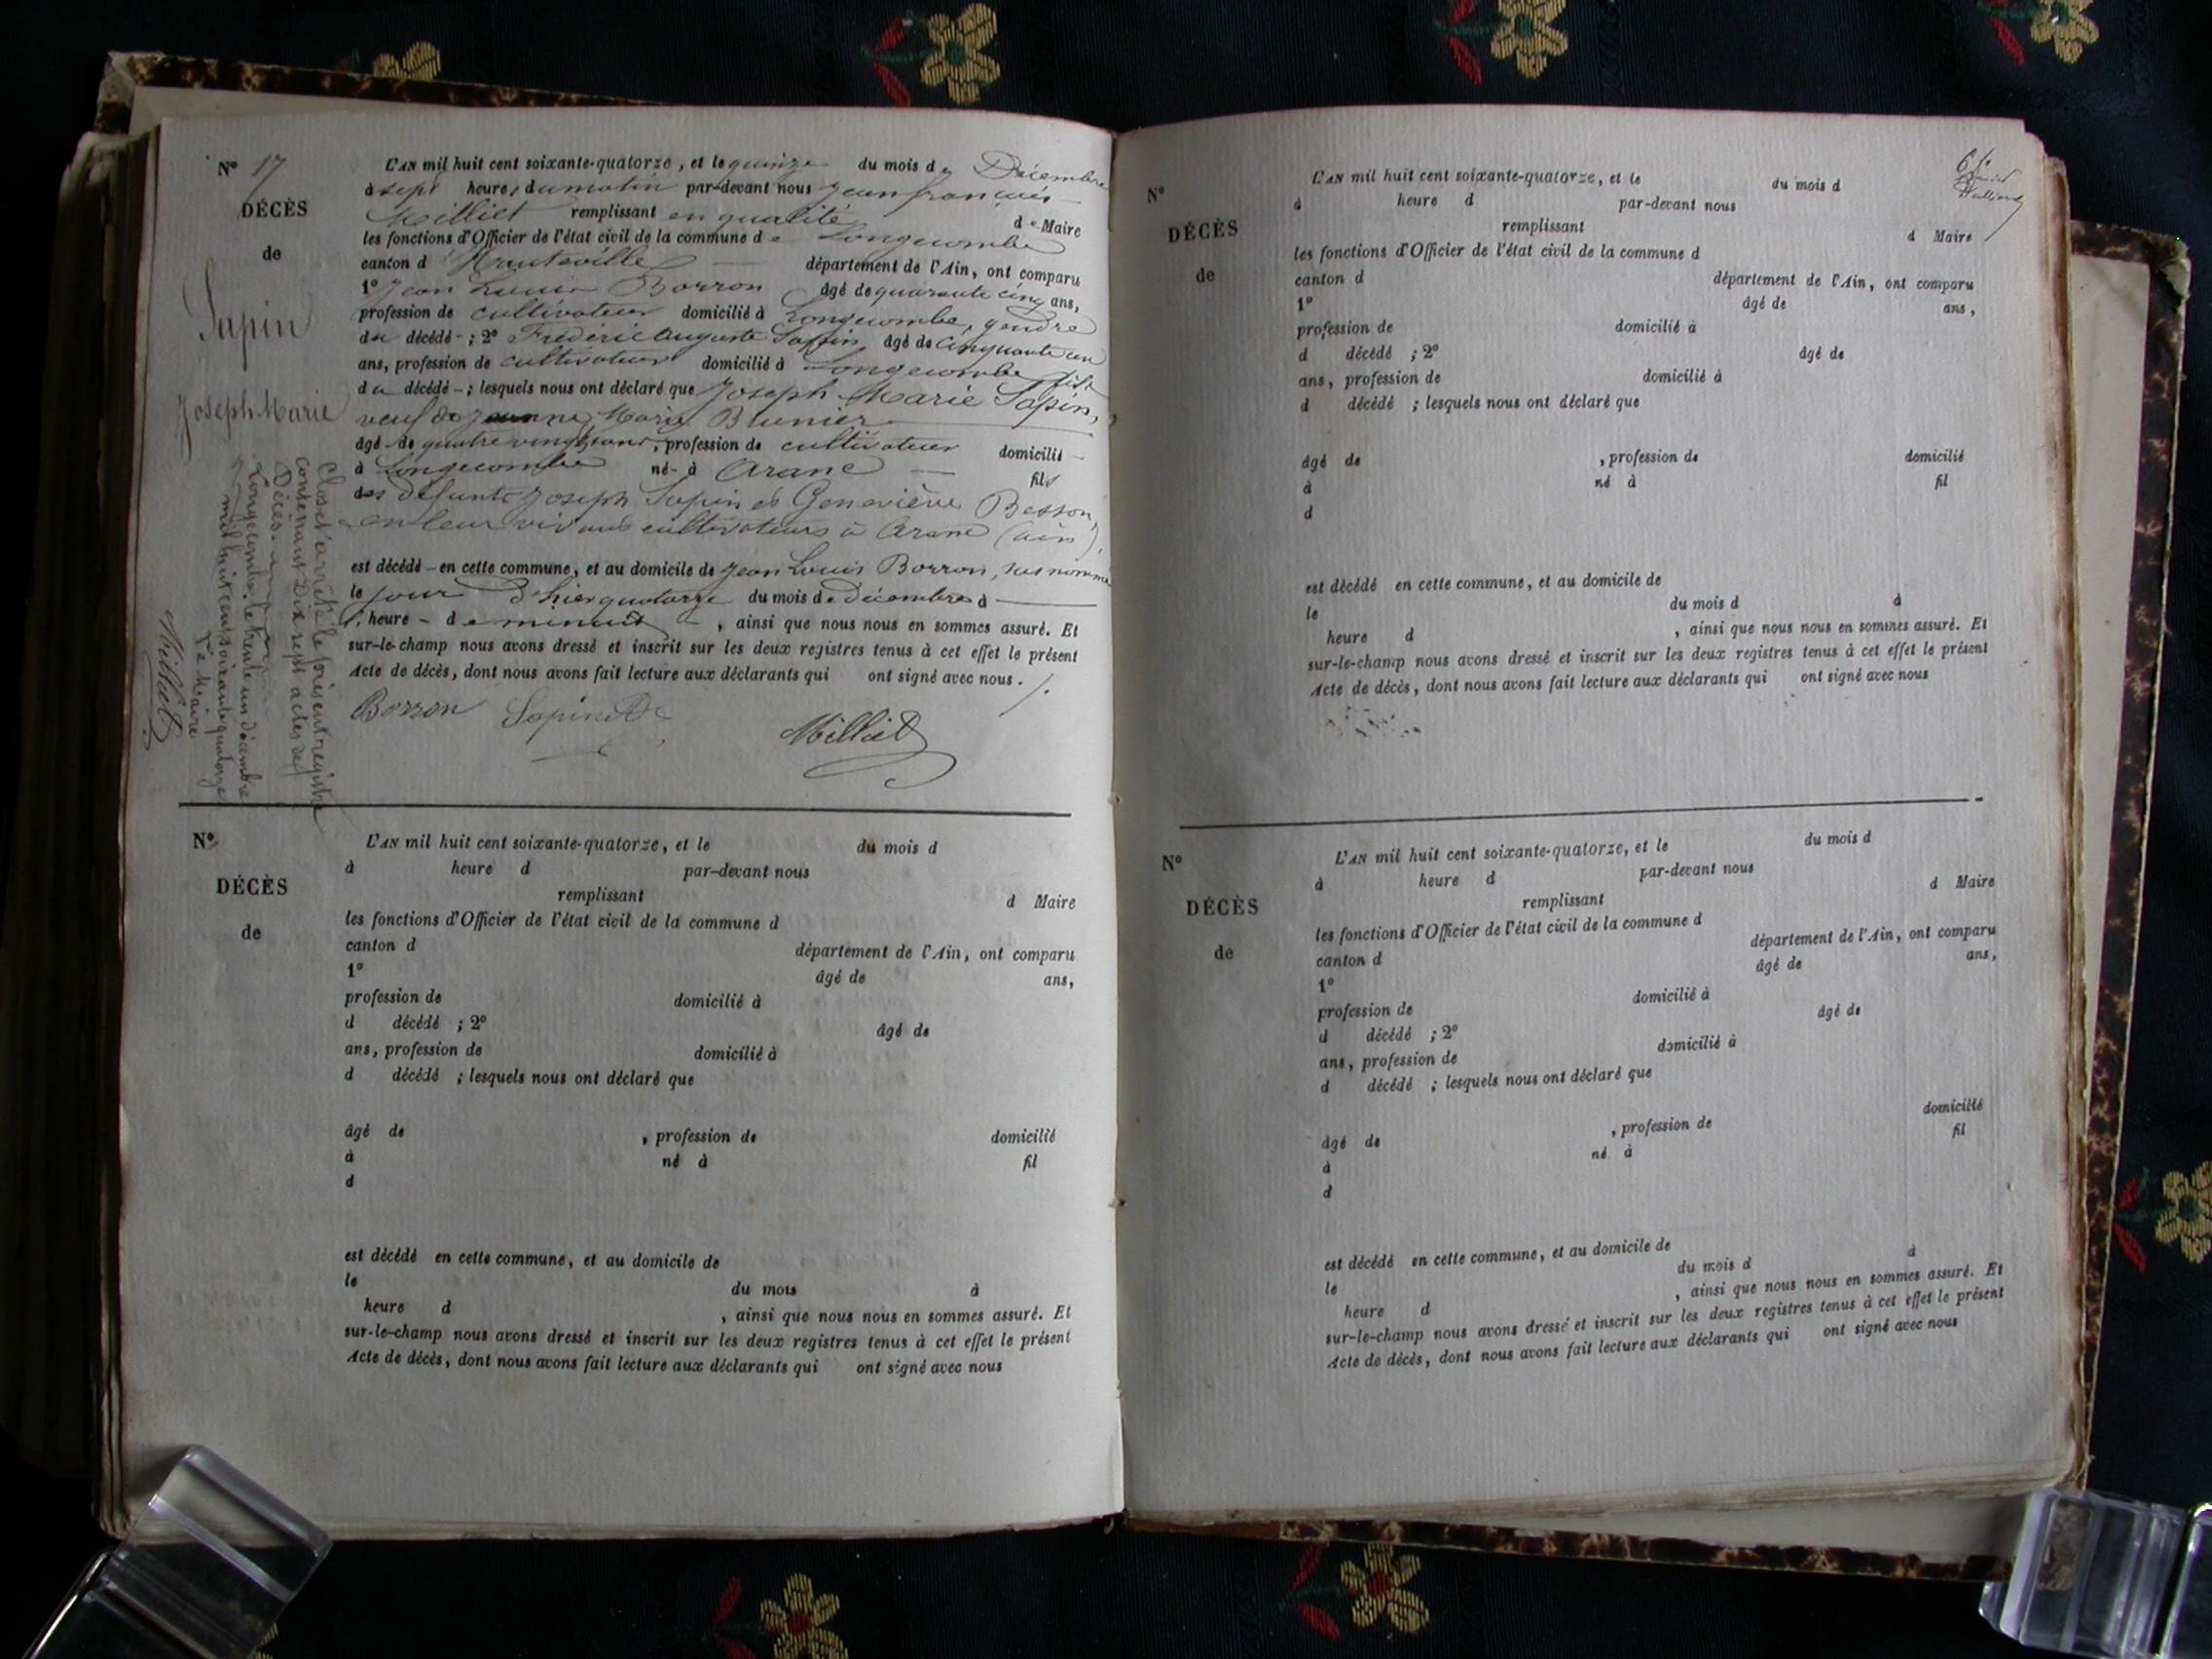 N° 17
DÉCÈS
de
Sapin
Joseph Marie
L'AN mil huit cent soixante-quatorze, et le quinze du mois de Décembre
à sept heures du matin par-devant nous Jean françois
Milliet remplissant en qualité de Maire
les fonctions d'Officier de l'état civil de la commune de Longecombe
canton d'Hauteville département de l'Ain, ont comparu
1° Jean Louis Borron âgé de quarante cinq ans,
profession de cultivateur domicilié à Longecombe, gendre
du décédé ; 2° Frédéric Auguste Sapin, âgé de cinquante un
ans, profession de cultivateur domicilié à Longecombe fils
du décédé ; lesquels nous ont déclaré que Joseph Marie Sapin,
veuf de Jeanne Marie Brunier
âgé de quatre vingt ans, profession de cultivateur domicilié
à Longecombe né à Aranc fils
des défunts Joseph Sapin et Geneviève Besson,
en leur vivant cultivateurs à Aranc (ain).
est décédé en cette commune, et au domicile de Jean Louis Borron, sus nommé
le jour d'hier quatorze du mois de décembre à
l'heure de minuit, ainsi que nous nous en sommes assuré. Et
sur-le-champ nous avons dressé et inscrit sur les deux registres tenus à cet effet le présent
Acte de décès, dont nous avons fait lecture aux déclarants qui ont signé avec nous.
Borron Sapin Milliet
Clos et arrêté le présent registre
contenant Dix sept actes de
Décès.
Longecombe le trente un décembre
mil huit cent soixante quatorze
Le Maire
Milliet
N°
DÉCÈS
de
L'AN mil huit cent soixante-quatorze, et le du mois d
à heure d par-devant nous
remplissant d Maire
les fonctions d'Officier de l'état civil de la commune d
canton d département de l'Ain, ont comparu
1° âgé de ans,
profession de domicilié à
d décédé ; 2° âgé de
ans, profession de domicilié à
d décédé ; lesquels nous ont déclaré que
âgé de , profession de domicilié
à né à fil
d
est décédé en cette commune, et au domicile de
le du mois à
heure d , ainsi que nous nous en sommes assuré. Et
sur-le-champ nous avons dressé et inscrit sur les deux registres tenus à cet effet le présent
Acte de décès, dont nous avons fait lecture aux déclarants qui ont signé avec nous
N°
DÉCÈS
de
L'AN mil huit cent soixante-quatorze, et le du mois d
à heure d par-devant nous
remplissant d Maire
les fonctions d'Officier de l'état civil de la commune d
canton d département de l'Ain, ont comparu
1° âgé de ans,
profession de domicilié à
d décédé ; 2° âgé de
ans, profession de domicilié à
d décédé ; lesquels nous ont déclaré que
âgé de , profession de domicilié
à né à fil
d
est décédé en cette commune, et au domicile de
le du mois d à
heure d , ainsi que nous nous en sommes assuré. Et
sur-le-champ nous avons dressé et inscrit sur les deux registres tenus à cet effet le présent
Acte de décès, dont nous avons fait lecture aux déclarants qui ont signé avec nous
N°
DÉCÈS
de
L'AN mil huit cent soixante-quatorze, et le du mois d
à heure d par-devant nous
remplissant d Maire
les fonctions d'Officier de l'état civil de la commune d
canton d département de l'Ain, ont comparu
1° âgé de ans,
profession de domicilié à
d décédé ; 2° âgé de
ans, profession de domicilié à
d décédé ; lesquels nous ont déclaré que
âgé de , profession de domicilié
à né à fil
d
est décédé en cette commune, et au domicile de
le du mois d à
heure d , ainsi que nous nous en sommes assuré. Et
sur-le-champ nous avons dressé et inscrit sur les deux registres tenus à cet effet le présent
Acte de décès, dont nous avons fait lecture aux déclarants qui ont signé avec nous